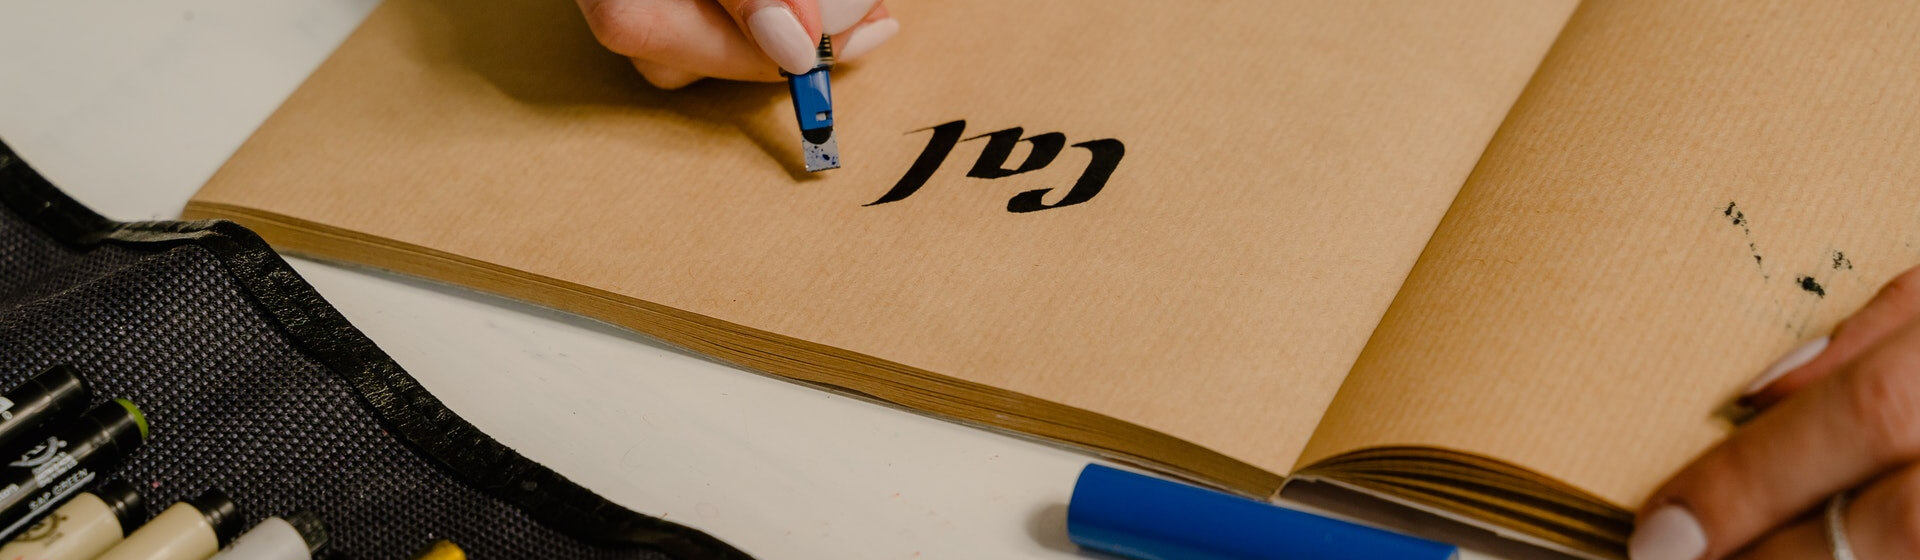 Cal
SAP GREEN